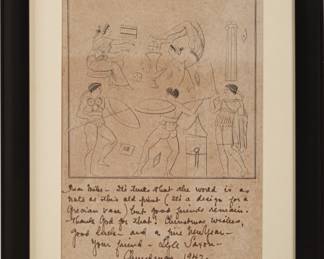 Dear Mike - It's true that the world is as
nuts as this old print (it's a design for a
Grecian vase) but good friends remain.
Thank God for that! Christmas wishes,
good luck - and a fine New Year -
Your friend - Lyle Saxon -
Christmas 194